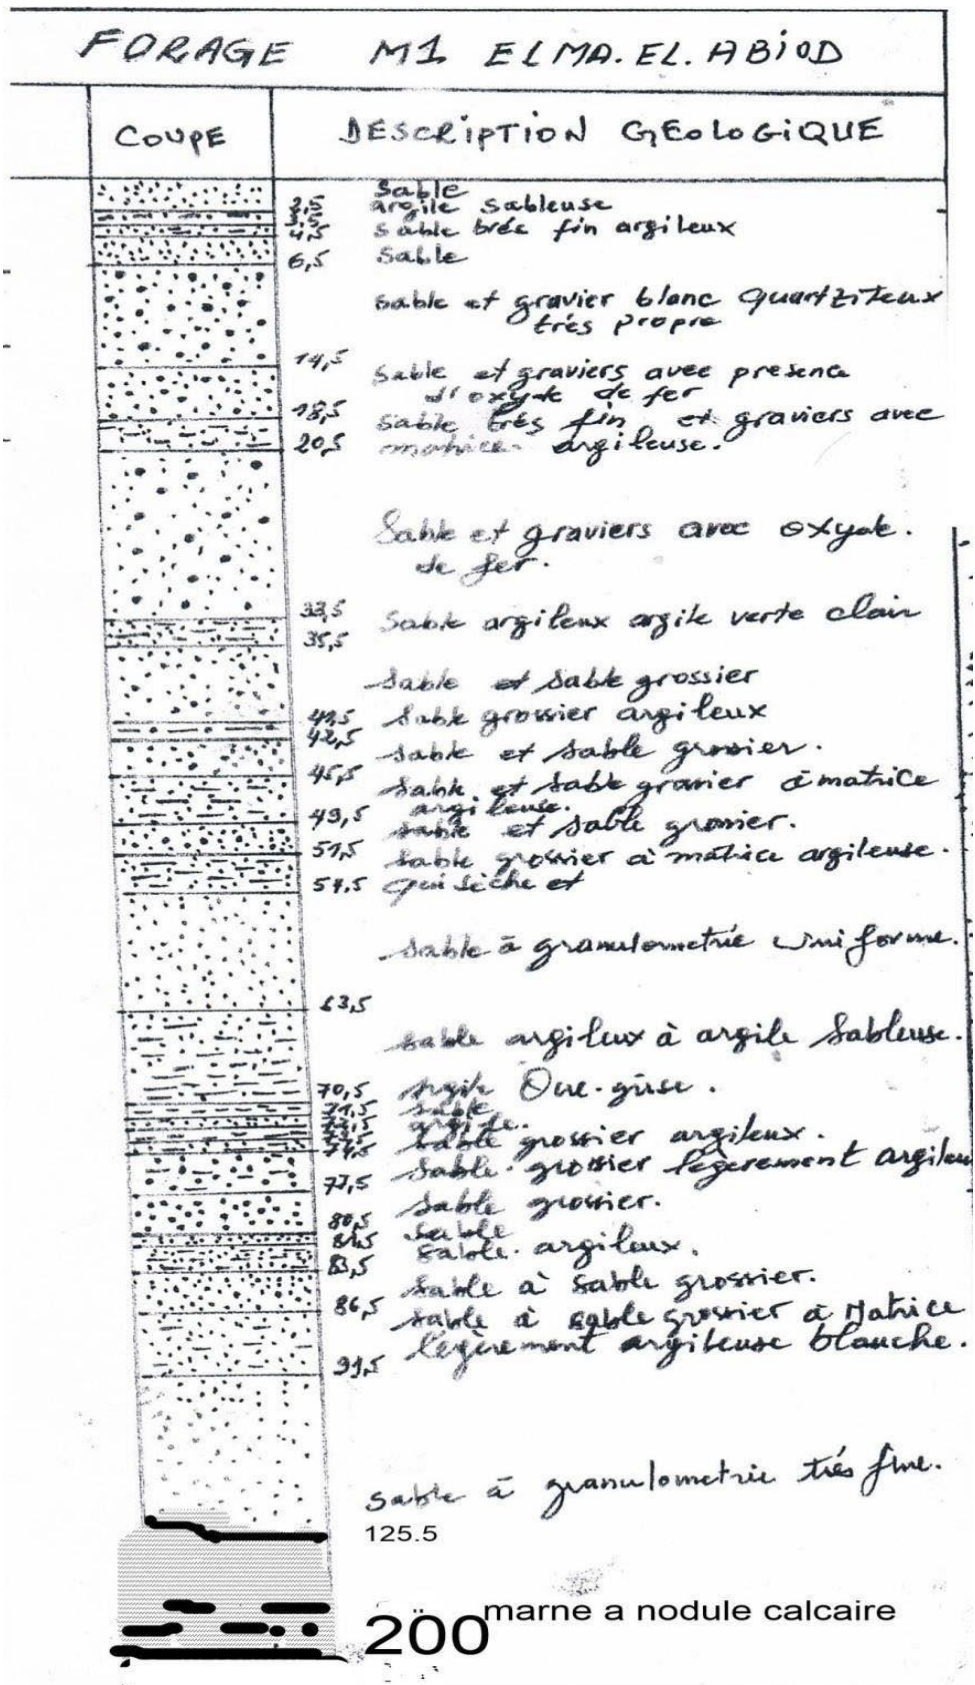 FORAGE M1 ELMA.EL.ABiOD
COUPE
DESCRIPTION GEOLOGIQUE
Sable
argile sableuse
4,5 sable trés fin argileux
6,5 Sable
sable et gravier blanc quartziteux
très propre
14,5
sable et graviers avec presence
d'oxyde de fer
18,5
sable très fin et graviers avec
20,5 matrice argileuse.
Sable et graviers avec oxyde.
de fer.
33,5
Sable argileux argile verte clair
35,5
sable et sable grossier
41,5 sable grossier argileux
42,5
sable et sable grossier.
45,5
sable et sable gravier à matrice
argileuse.
49,5
sable et sable grossier.
51,5
sable grossier à matrice argileuse.
54,5 qui sèche et
sable à granulometrie uniforme.
63,5
sable argileux à argile sableuse.
70,5 argile grise.
71,5 sable
argile.
sable grossier argileux.
74,5
sable grossier légèrement argileu
77,5
sable grossier.
80,5
sable
81,5
sable argileux.
83,5
sable à sable grossier.
86,5
sable à sable grossier à Matrice
légèrement argileuse blanche.
91,5
sable à granulometrie très fine.
125.5
200 marne a nodule calcaire